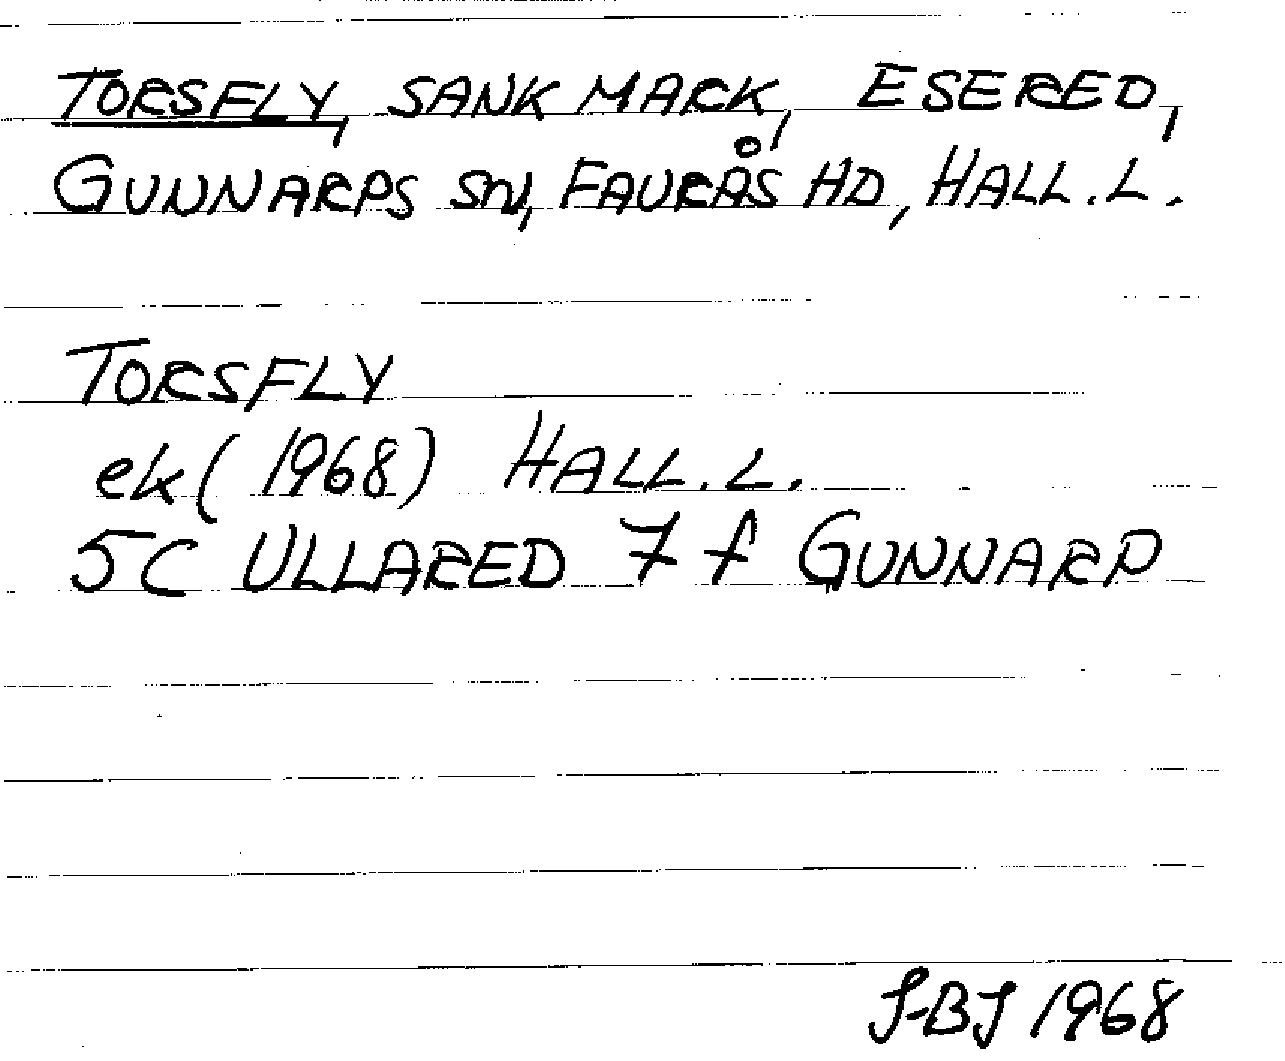 TORSFLY, SANK MARK, ESERED,
GUNNARPS SN, FAURÅS HD, HALL.L.
TORSFLY
ek (1968) HALL.L.
5C ULLARED 7 f GUNNARP
J-BJ 1968